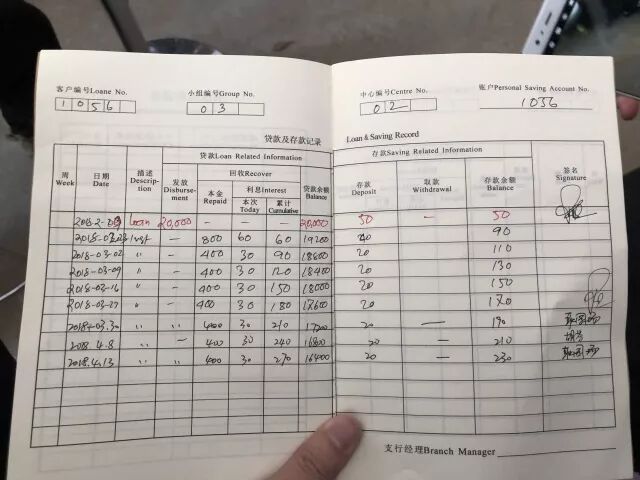 客户编号Loane No.
1056
小组编号Group No.
03
中心编号Centre No.
02
账户Personal Saving Account No.
1056
贷款及存款记录
Loan & Saving Record
周
Week
日期
Date
描述
Descrip-
tion
贷款Loan Related Information
发放
Disburse-
ment
回收Recover
本金
Repaid
利息Interest
本次
Today
累计
Cumulative
贷款余额
Balance
存款Saving Related Information
存款
Deposit
取款
Withdrawal
存款余额
Balance
签名
Signature
loan 20,000 — — — 20,000 50 — 50
— 800 60 60 19200 40 90
2018-03-02 〃 — 400 30 90 18800 20 110
2018-03-09 〃 — 400 30 120 18400 20 130
2018-03-16 〃 — 400 30 150 18000 20 150
2018-03-27 〃 — 400 30 180 17600 20 170
〃 〃 400 30 210 17200 20 — 190
2018.4.8 〃 — 400 30 240 16800 20 — 210
2018.4.13 〃 〃 400 30 270 16400 20 — 230
支行经理Branch Manager